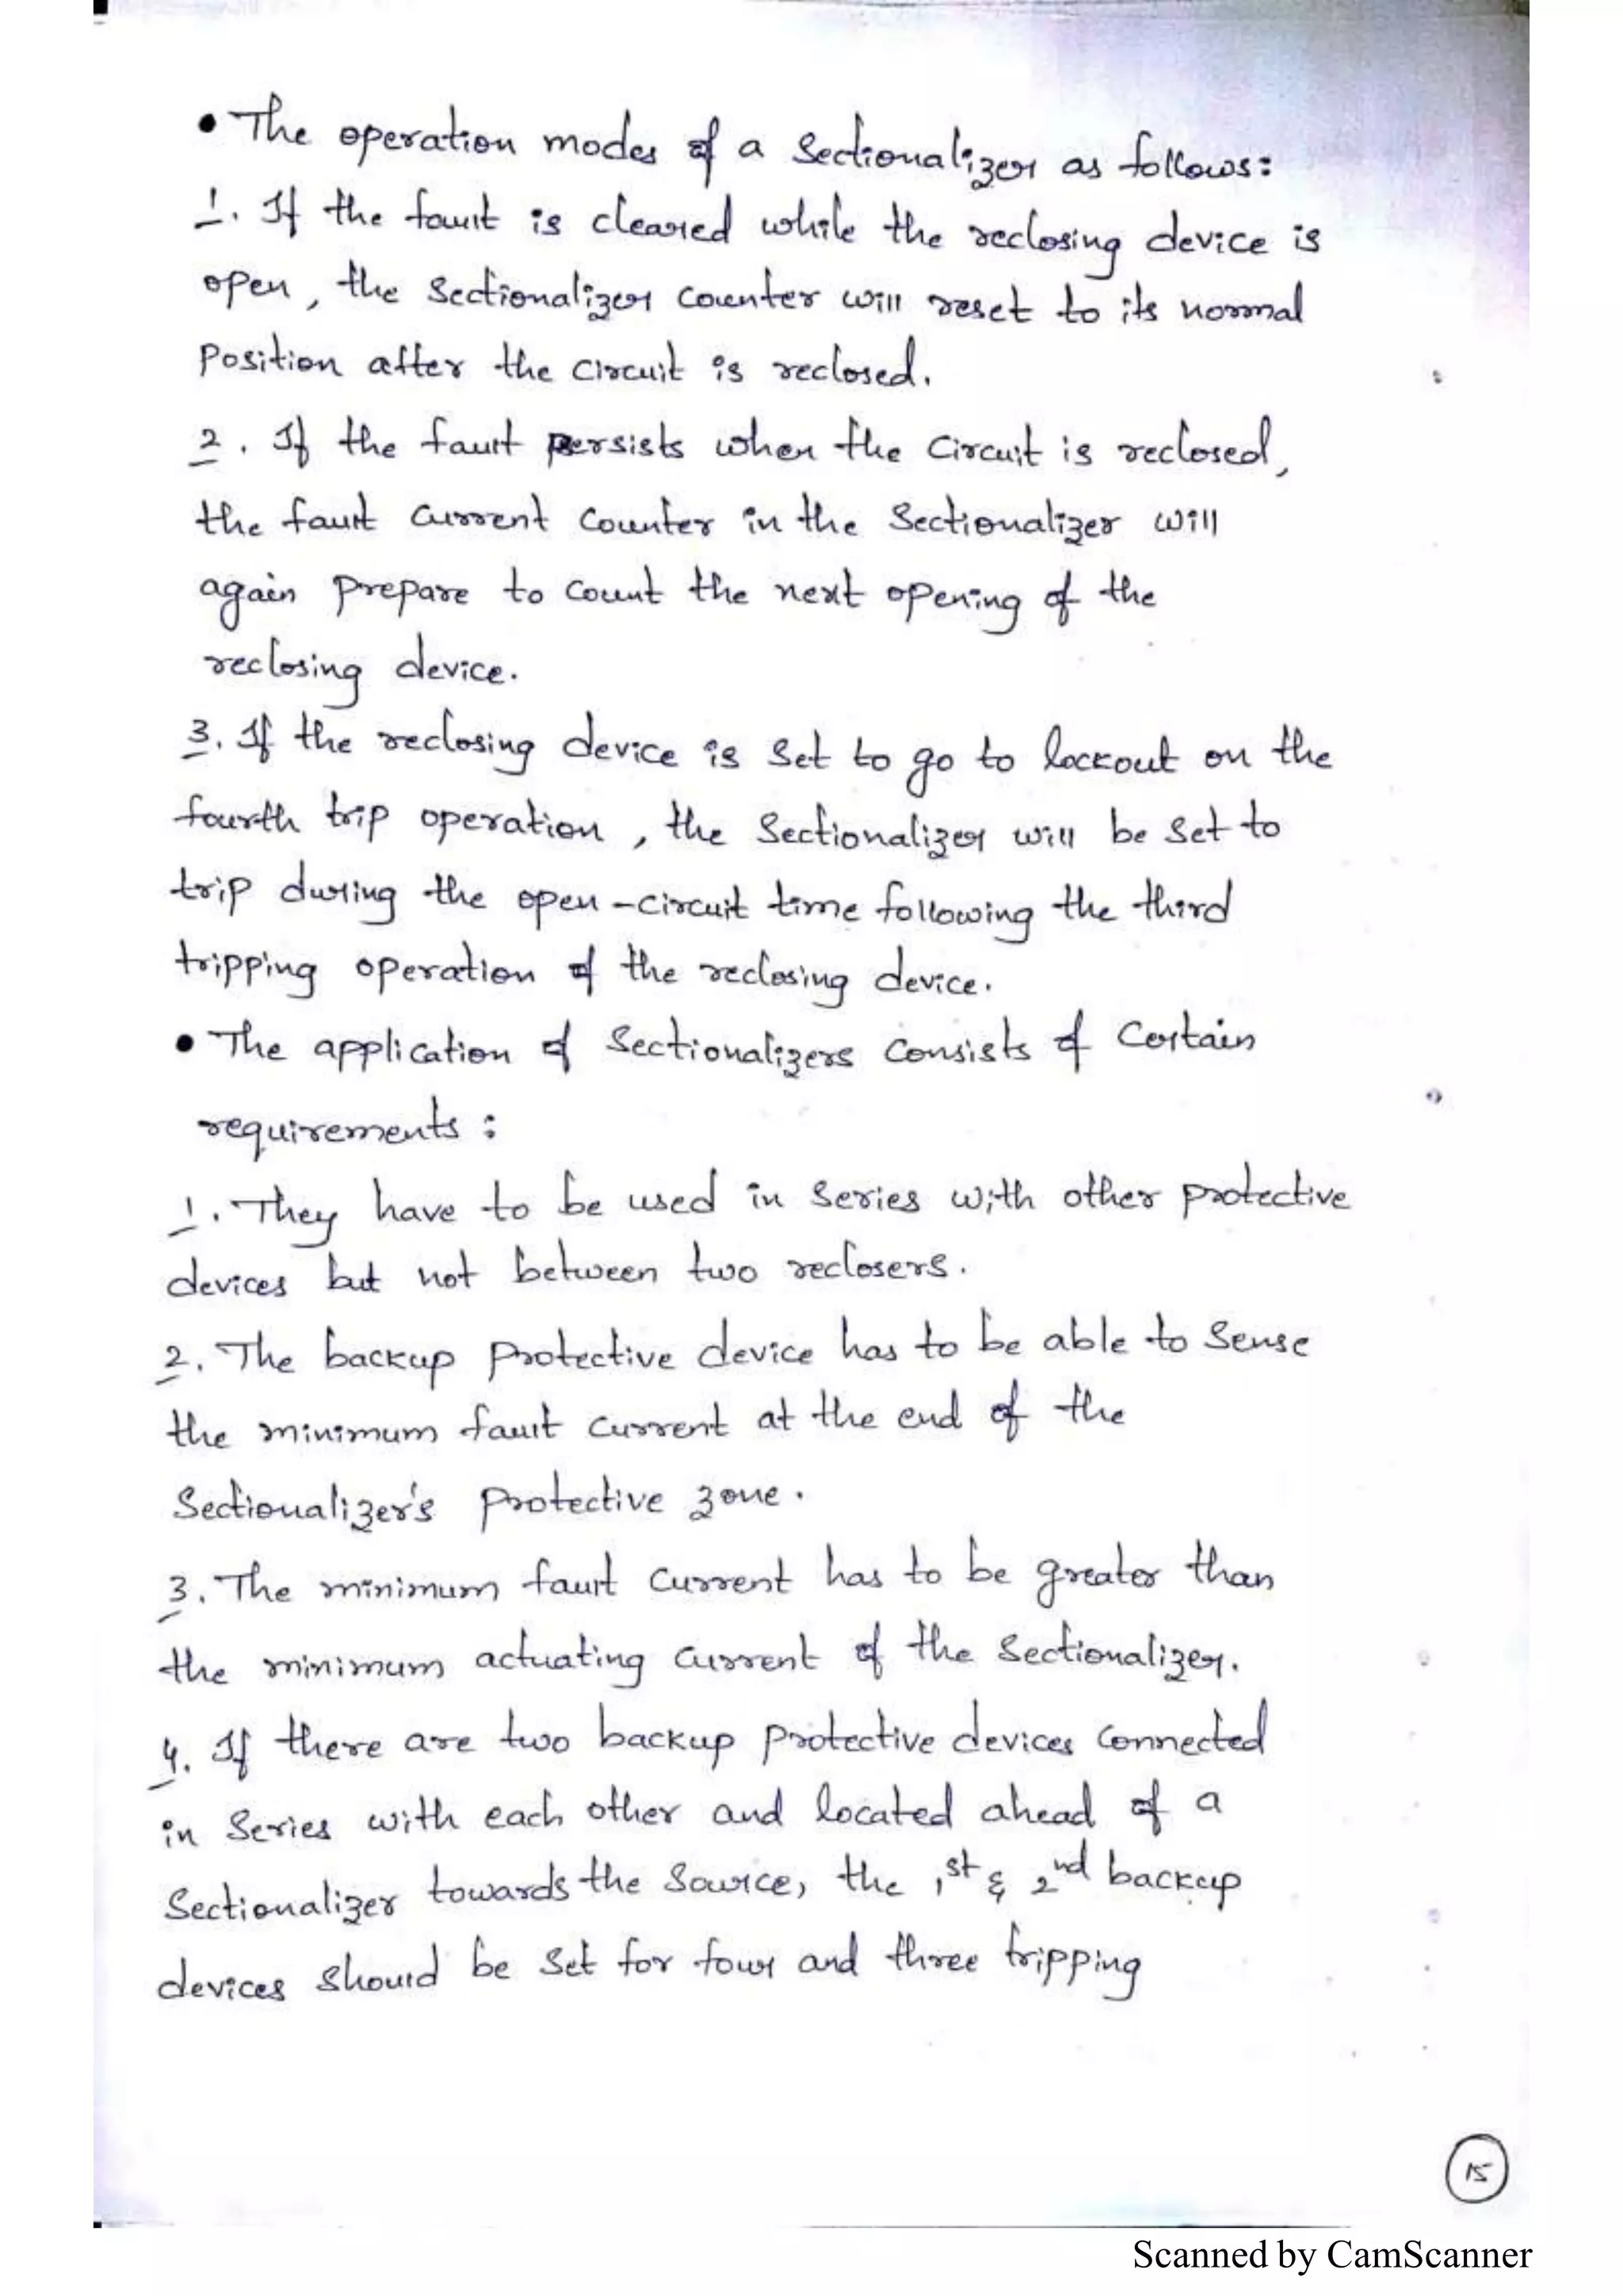 • The operation modes of a Sectionalizer as follows:
1. If the fault is cleared while the reclosing device is
open, the Sectionalizer counter will reset to its normal
Position after the circuit is reclosed.
2. If the fault persists when the circuit is reclosed,
the fault current counter in the Sectionalizer will
again prepare to count the next opening of the
reclosing device.
3. If the reclosing device is set to go to lockout on the
fourth trip operation, the Sectionalizer will be set to
trip during the open-circuit time following the third
tripping operation of the reclosing device.
• The application of Sectionalizers consists of certain
requirements:
1. They have to be used in series with other protective
devices but not between two reclosers.
2. The backup protective device has to be able to sense
the minimum fault current at the end of the
Sectionalizer's protective zone.
3. The minimum fault current has to be greater than
the minimum actuating current of the Sectionalizer.
4. If there are two backup protective devices connected
in series with each other and located ahead of a
Sectionalizer towards the source, the 1st & 2nd backup
devices should be set for four and three tripping
15
Scanned by CamScanner